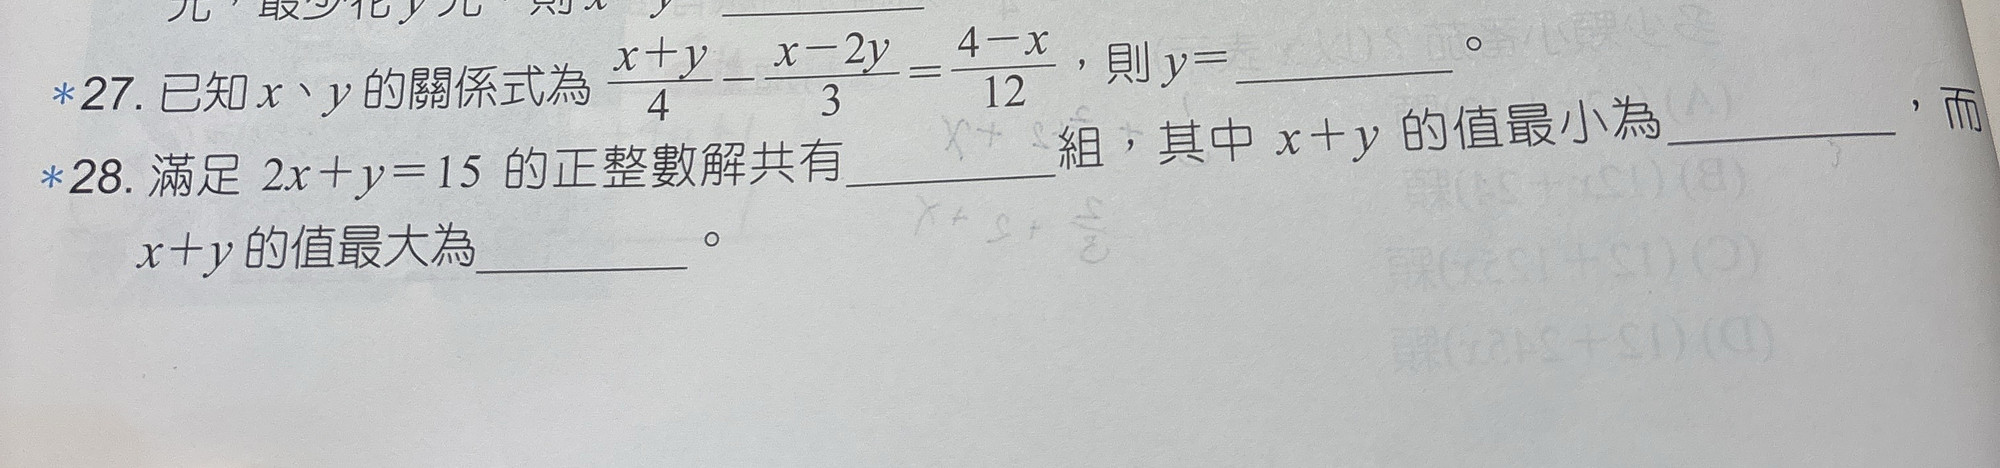 *27. 已知 x、y 的關係式為 \frac{x+y}{4}-\frac{x-2y}{3}=\frac{4-x}{12},則 y=________。
*28. 滿足 2x+y=15 的正整數解共有________組,其中 x+y 的值最小為________,而
x+y 的值最大為________。